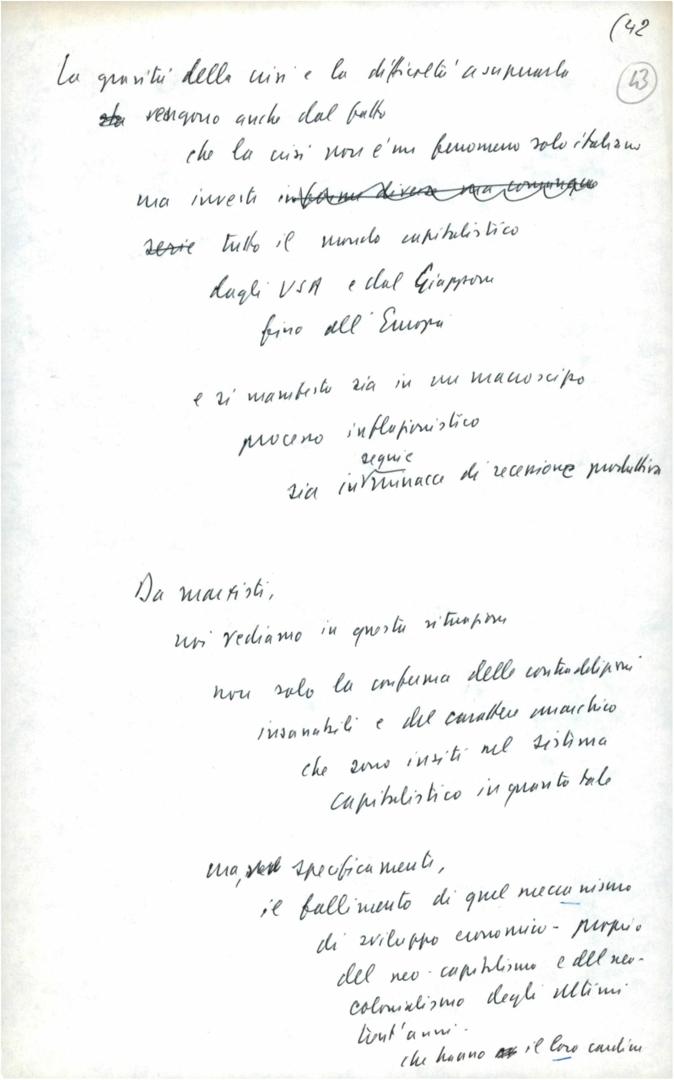 (42
43
La gravità della crisi e la difficoltà a superarla
sta vengono anche dal fatto
che la crisi non è un fenomeno solo italiano
ma investe in forme diverse ma comunque
serie tutto il mondo capitalistico
dagli USA e dal Giappone
fino all'Europa
e si manifesta sia in un macroscopico
processo inflazionistico
serie
sia in minacce di recessione produttiva
Da marxisti,
noi vediamo in questa situazione
non solo la conferma delle contraddizioni
insanabili e del carattere anarchico
che sono insiti nel sistema
capitalistico in quanto tale
ma, specificamente,
il fallimento di quel meccanismo
di sviluppo economico - proprio
del neo-capitalismo e del neo-
colonialismo degli ultimi
trent'anni.
che hanno il loro cardine